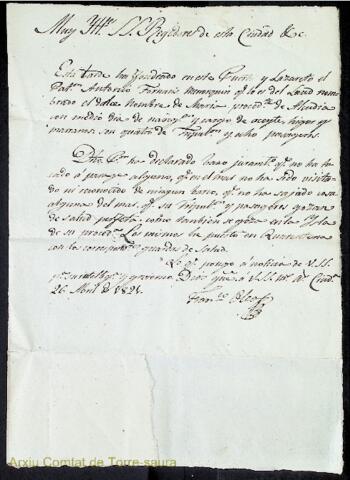 Muy Ilts. S.S. Regidores de esta Ciudad &c.
Esta tarde ha fondeado en este Puerto y Lazareto el
Patn. Antonio menorquin qe. lo es del Laud nom-
brado el dulce Nombre de Maria proced.te de Alcudia
con medio dia de naveg.n y cargo de aceyte, higos y
su quatro de Tripults. y ocho pasageros.
Dho. Pn. ha declarado baxo juramto. qe. no ha to-
cado á parage alguno, qe. en el mar no ha sido visita-
do ni reconocido de ningun barco, qe. no ha cojido cosa
alguna del mar, qe. su Tripulon. y pasageros gozan
de salud perfecta, como tambien se goza en la Ysla
de su proceda. Los mismos he puesto en Quarentena
con los correspondtes. guardas de salud.
Lo qe. pongo á noticia de V.SS.
pa. su intelliga. y govierno. Dios gue. á V.SS. ms. as. Ciuda.
26 Abril de 1821.
Franco.
Arxiu Comtat de Torre-saura